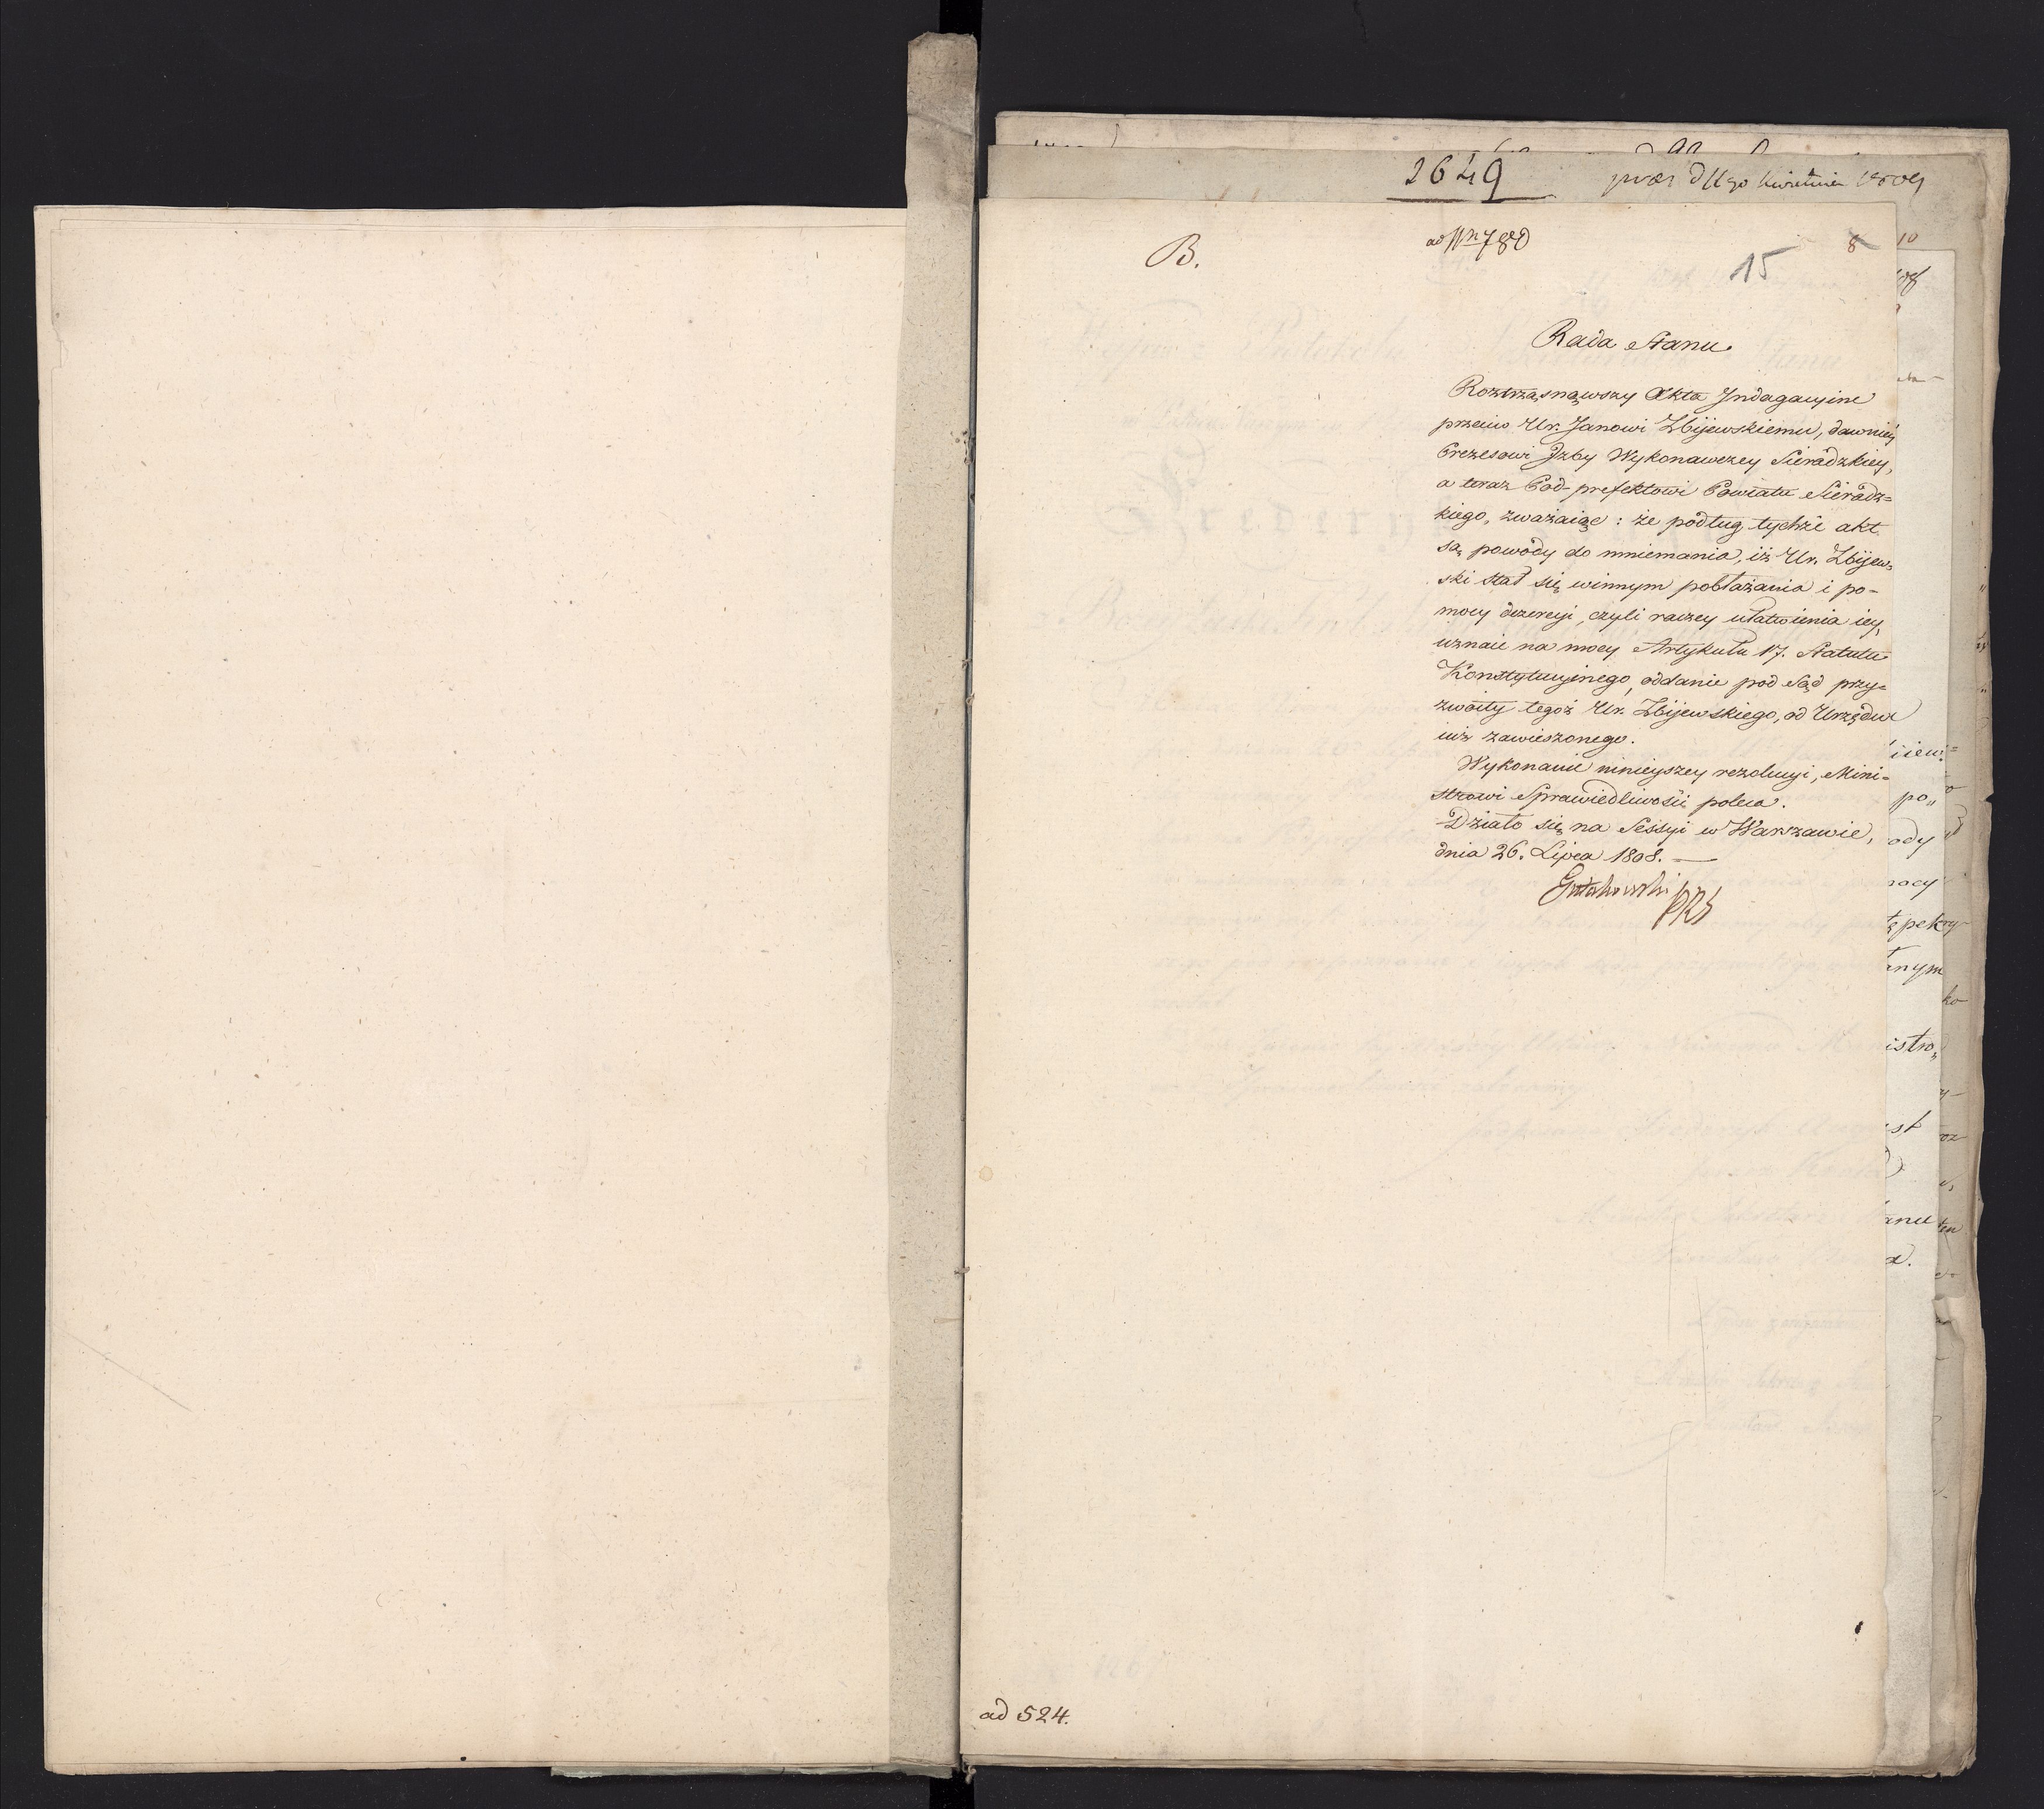 2649
B.
15
8
10
Rada Stanu
Roztrząsnąwszy Akta Indagacyine
przeciw Ur. Janowi Zbijewskiemu, dawniéy
Prezesowi Izby Wykonawczey Sieradzkiey,
a teraz Pod-prefektowi Powiatu Sieradz=
kiego, zważaiąc: że podług tychże akt
są powody do mniemania, iż Ur. Zbijew=
ski stał się winnym pobłażania i po=
mocy dezercyi, czyli raczey ułatwienia iey,
uznaie na mocy Artykułu 17. Statutu
Konstytucyinego, oddanie pod Sąd przy=
zwoity tegoż Ur. Zbijewskiego, od Urzędu
iuż zawieszonego.
Wykonanie ninieyszey rezolucyi, Mini=
strowi Sprawiedliwości poleca.
Działo się na Sessyi w Warszawie,
dnia 26. Lipca 1808. —
Gutakowski PRS
ad 524.